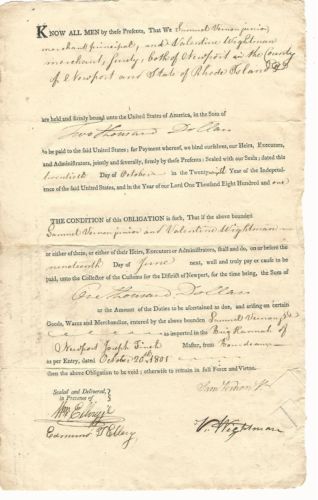 KNOW ALL MEN by these Presents, That We Samuel Vernon junior
merchant, principal, and Valentine Wightman
merchant, surety, both of Newport in the County
of Newport and State of Rhode Island &c
are held and firmly bound unto the United States of America, in the Sum of
Two thousand Dollars
to be paid to the said United States; for Payment whereof, we bind ourselves, our Heirs, Executors,
and Administrators, jointly and severally, firmly by these Presents; Sealed with our Seals; dated this
twentieth Day of October in the Twenty sixth Year of the Independence
of the said United States, and in the Year of our Lord One Thousand Eight Hundred and one
THE CONDITION of this OBLIGATION is such, That if the above bounden
Samuel Vernon junior and Valentine Wightman
or either of them, or either of their Heirs, Executors or Administrators, shall and do, on or before the
nineteenth Day of June next, well and truly pay or cause to be
paid, unto the Collector of the Customs for the District of Newport, for the time being, the Sum of
One thousand Dollars
or the Amount of the Duties to be ascertained as due, and arising on certain
Goods, Wares and Merchandize, entered by the above bounden Samuel Vernon Jr
as imported in the Brig Hannah of
Newport Joseph Finch Master, from Bourdeaux
as per Entry, dated October 20th 1801
then the above Obligation to be void; otherwise to remain in full Force and Virtue.
Sealed and Delivered,
in Presence of
Sam Vernon Jr
Wm Ellery Jr
V. Wightman
Edmund T Ellery